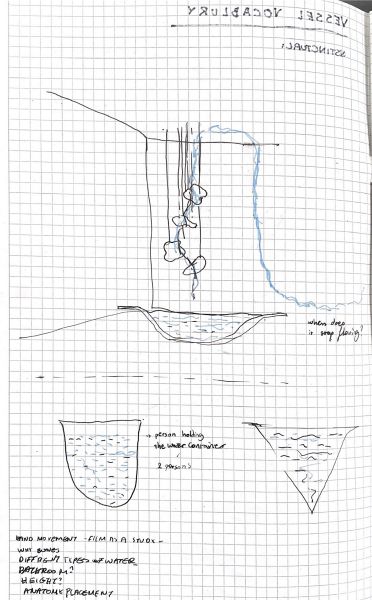 VESSEL VOCABLURY
INSTINCTUAL:
where drop
it stop flowing?
→ person holding
the water container
2 persons
HAND MOVEMENT - FILM AS A STUDY -
WHY BONES
DIFFRENT TYPES OF WATER
BATHROOM?
HEIGHT?
ANATOMY PLACEMENT